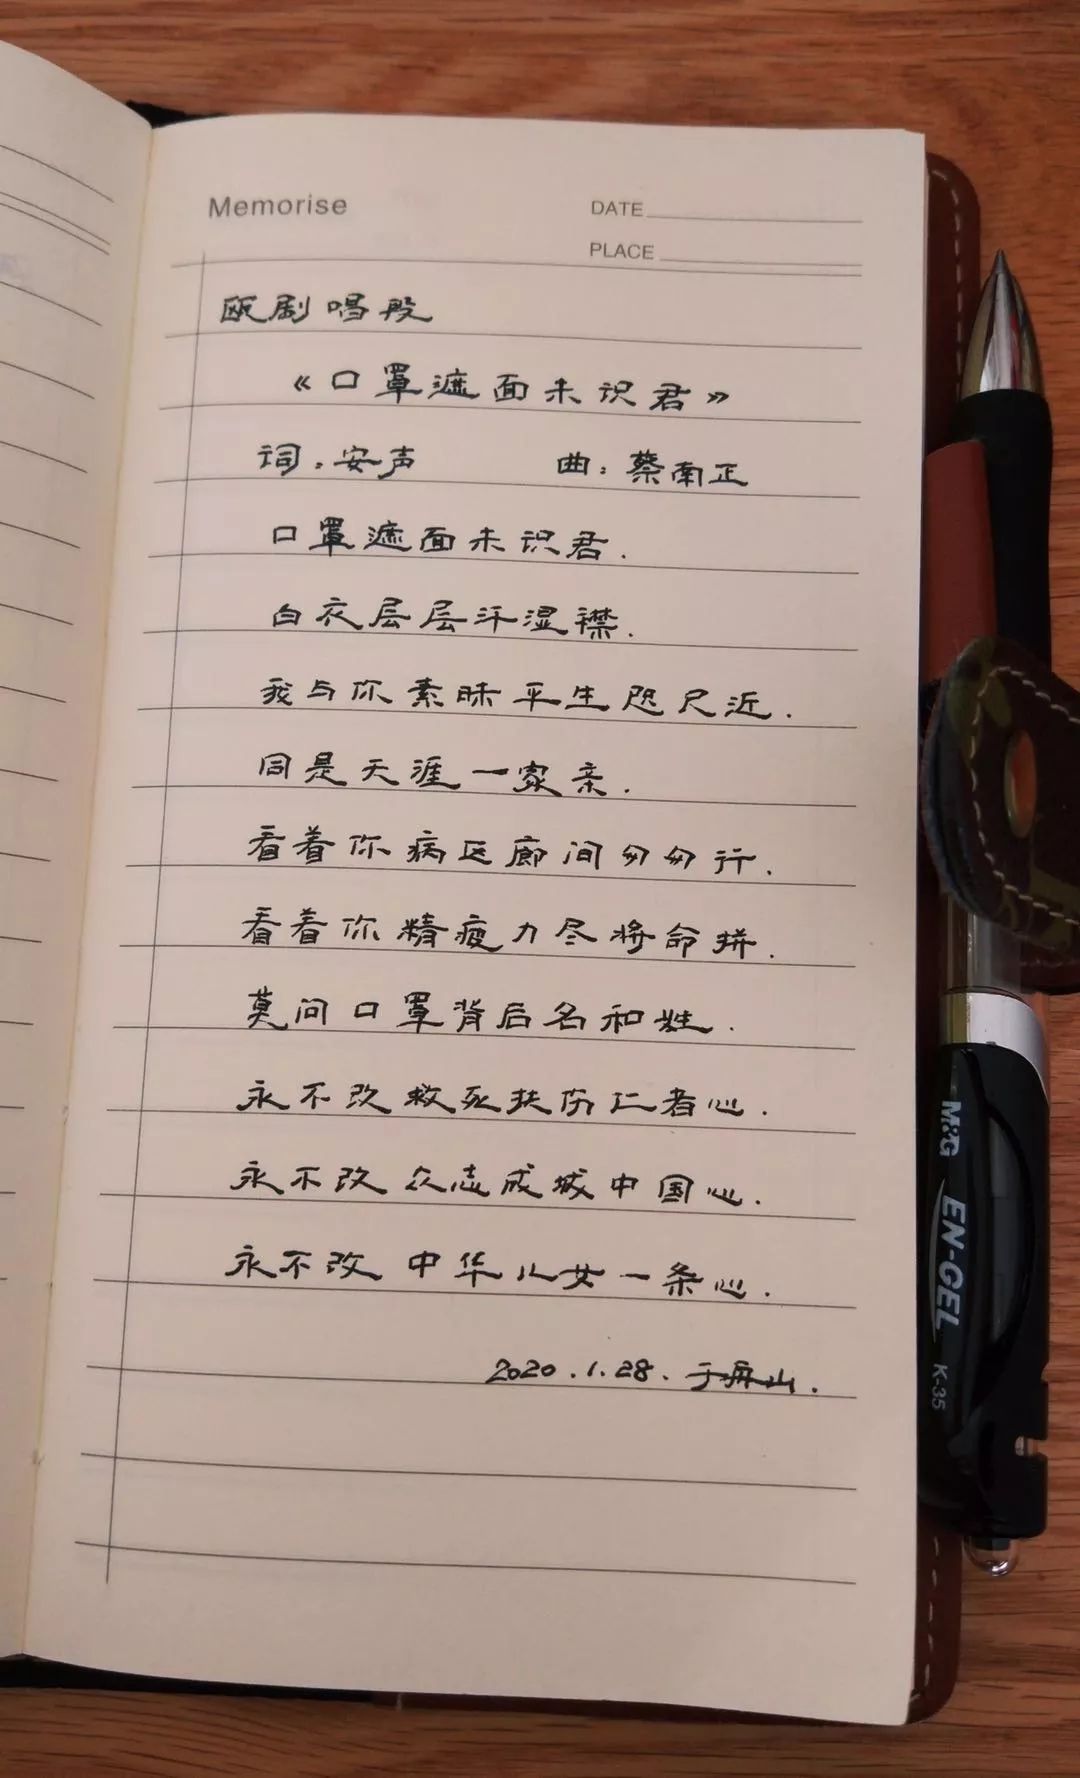 Memorise
DATE
PLACE
瓯剧唱段
《口罩遮面未识君》
词：安声 曲：蔡南正
口罩遮面未识君.
白衣层层汗湿襟.
我与你素昧平生咫尺近.
同是天涯一家亲.
看着你病区廊间匆匆行.
看着你精疲力尽将命拼.
莫问口罩背后名和姓.
永不改救死扶伤仁者心.
永不改众志成城中国心.
永不改中华儿女一条心.
2020.1.28.于屏山.
M&G EN-GEL K-35